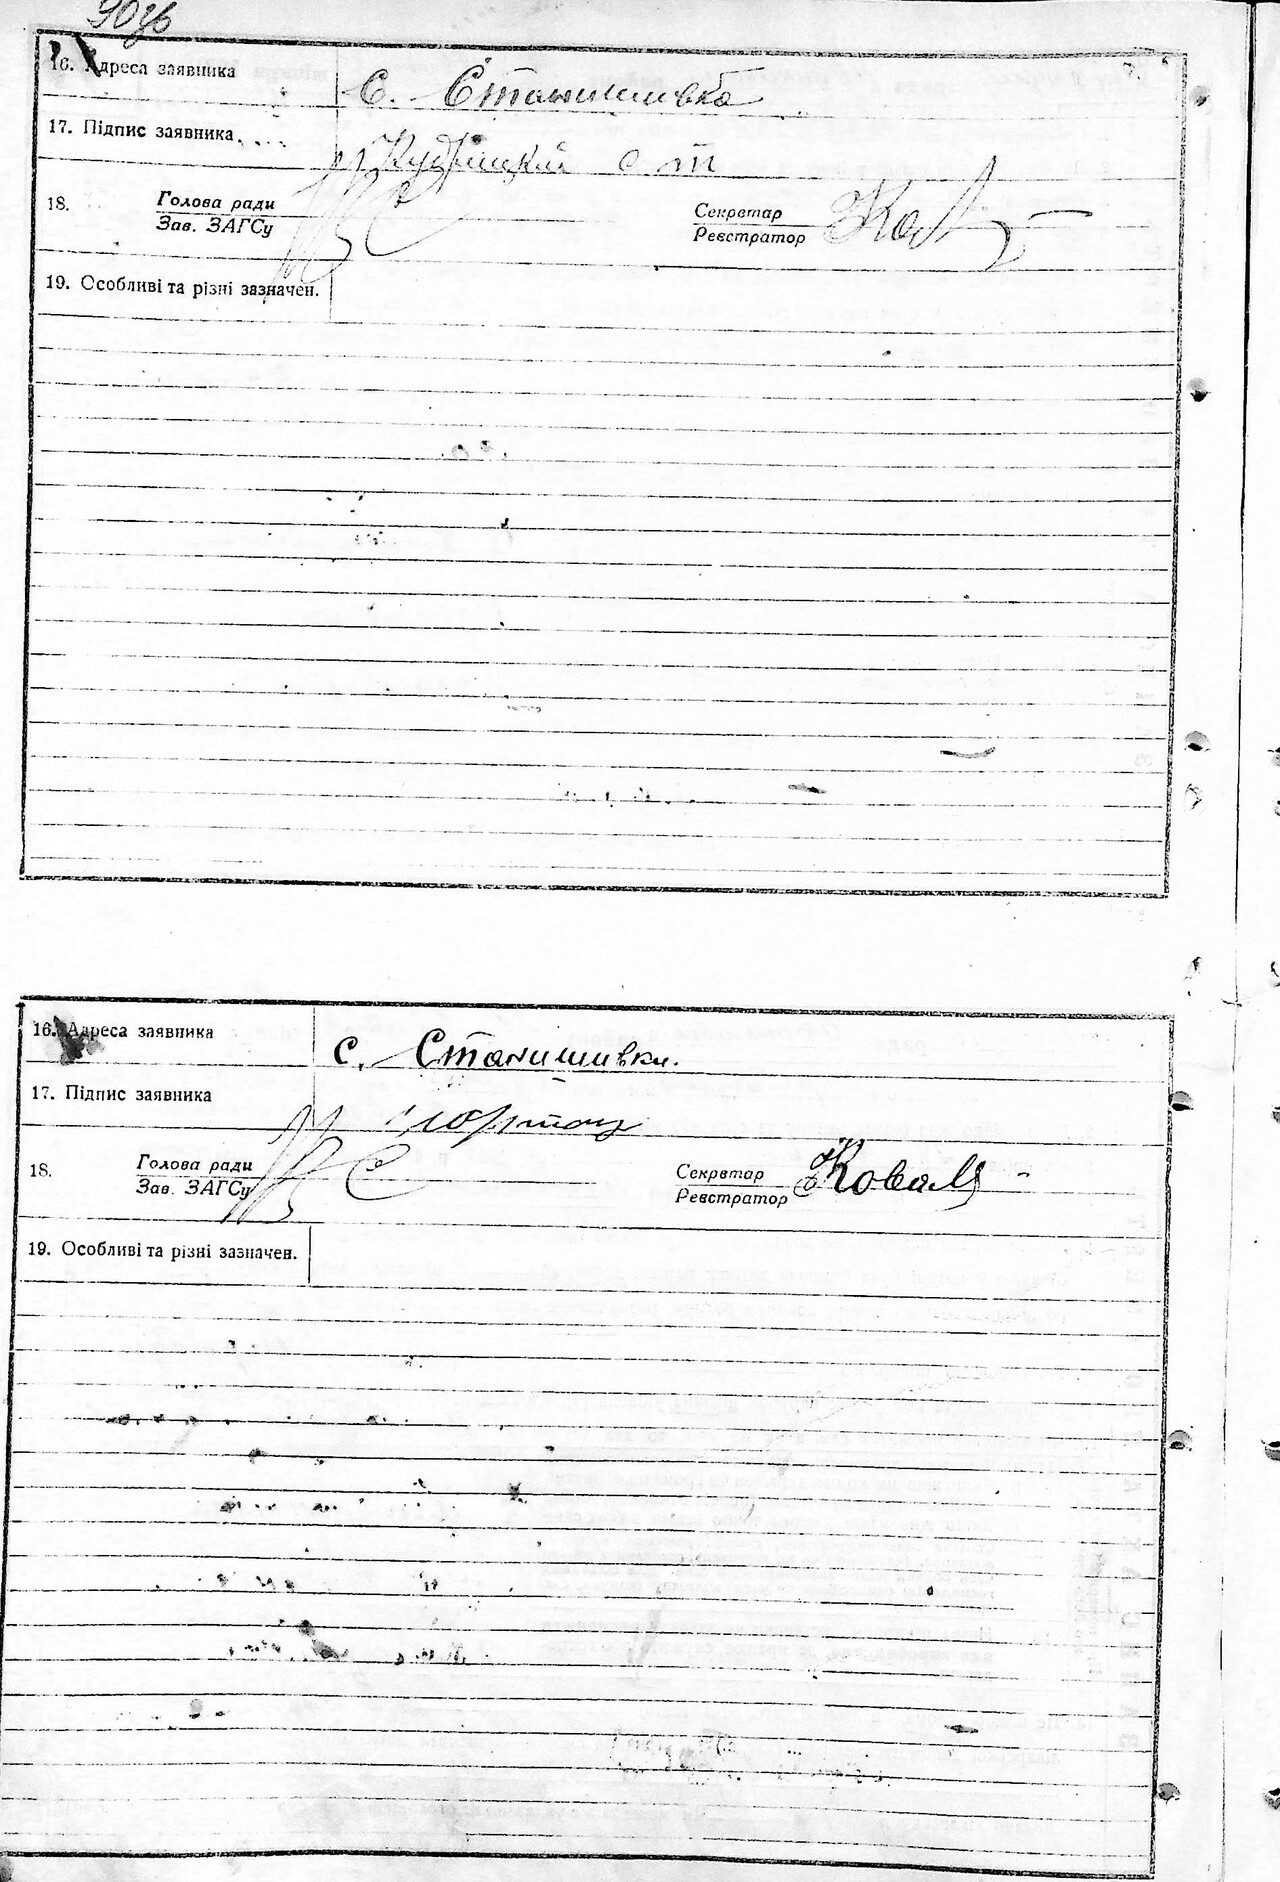 90зв
16. Адреса заявника с. Станишивка
17. Підпис заявника Кудрицкий с т
18. Голова ради Секретар
Зав. ЗАГСу Реєстратор Кова
19. Особливі та різні зазначен.
16. Адреса заявника с. Станишивка.
17. Підпис заявника
18. Голова ради Секретар
Зав. ЗАГСу Реєстратор Коваль
19. Особливі та різні зазначен.